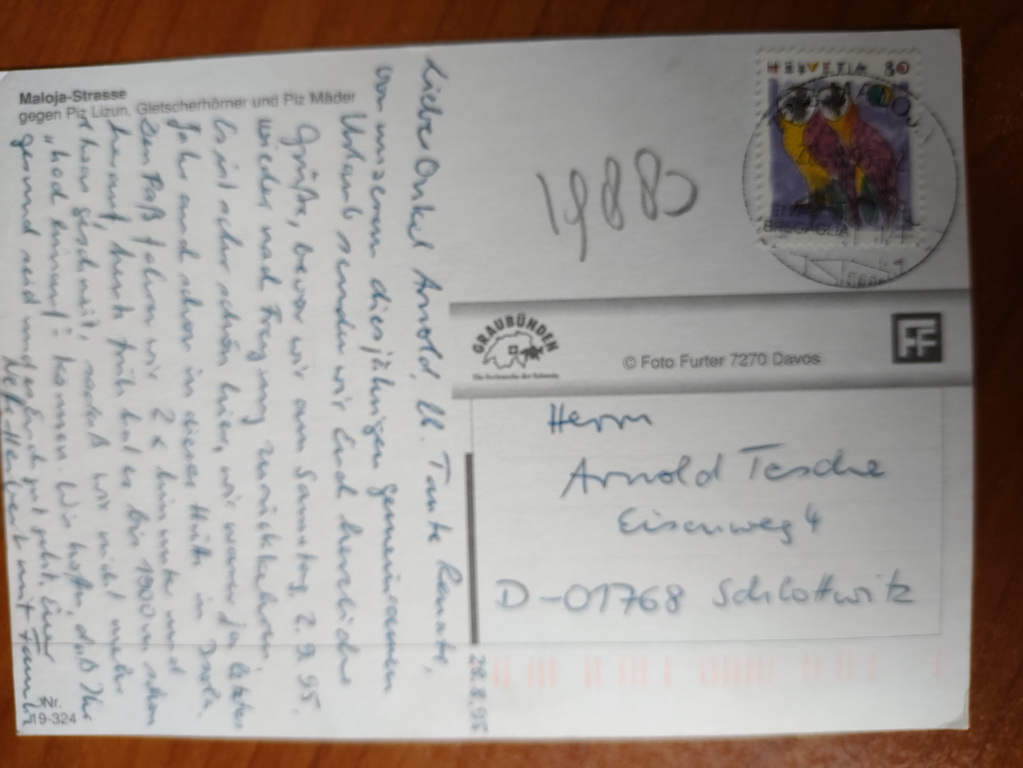 Maloja-Strasse
gegen Piz Lizun, Gletscherhörner und Piz Mäder
28.8.95
Liebe Onkel Arnold, lb. Tante Renate,
von unserem diesjährigen gemeinsamen
Urlaub senden wir Euch herzliche
Grüße, bevor wir am Samstag, 2.9.95,
wieder nach Freyung zurückkehren.
Es ist sehr schön hier, wir waren ja letztes
Jahr auch schon in dieser Hütte in
Den Paß fahren wir 2x hinunter und
herauf, heute früh hat es bis 1800m schon
geschneit, sodaß wir nicht mehr
kommen. Wir hoffen, daß Ihr
gesund seid und es Euch gut geht. Euer
Neffe Herbert mit Familie
Nr.
19-324
HELVETIA 80
BREGAGLIA
19880
GRAUBÜNDEN
Die Ferienecke der Schweiz
© Foto Furter 7270 Davos
FF
Herrn
Arnold Tesche
Eisenweg 4
D-01768 Schlottwitz